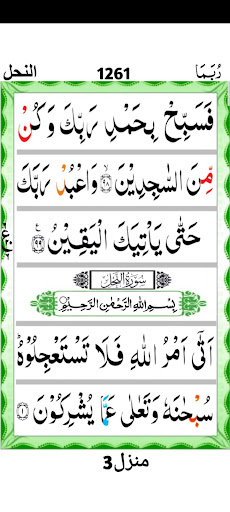 النحل 1261 رُبَمَا
فَسَبِّحۡ بِحَمۡدِ رَبِّكَ وَكُنۡ
مِّنَ السّٰجِدِيۡنَ ۙ‏﴿۹۸﴾ وَاعۡبُدۡ رَبَّكَ
حَتّٰى يَاۡتِيَكَ الۡيَـقِيۡنُ‏ ﴿۹۹﴾
سُوۡرَةُ النَّحۡلِ
بِسۡمِ اللهِ الرَّحۡمٰنِ الرَّحِيۡمِ
اَتٰٓى اَمۡرُ اللّٰهِ فَلَا تَسۡتَعۡجِلُوۡهُ‌ ؕ
سُبۡحٰنَهٗ وَتَعٰلٰى عَمَّا يُشۡرِكُوۡنَ‏ ﴿۱﴾
منزل3